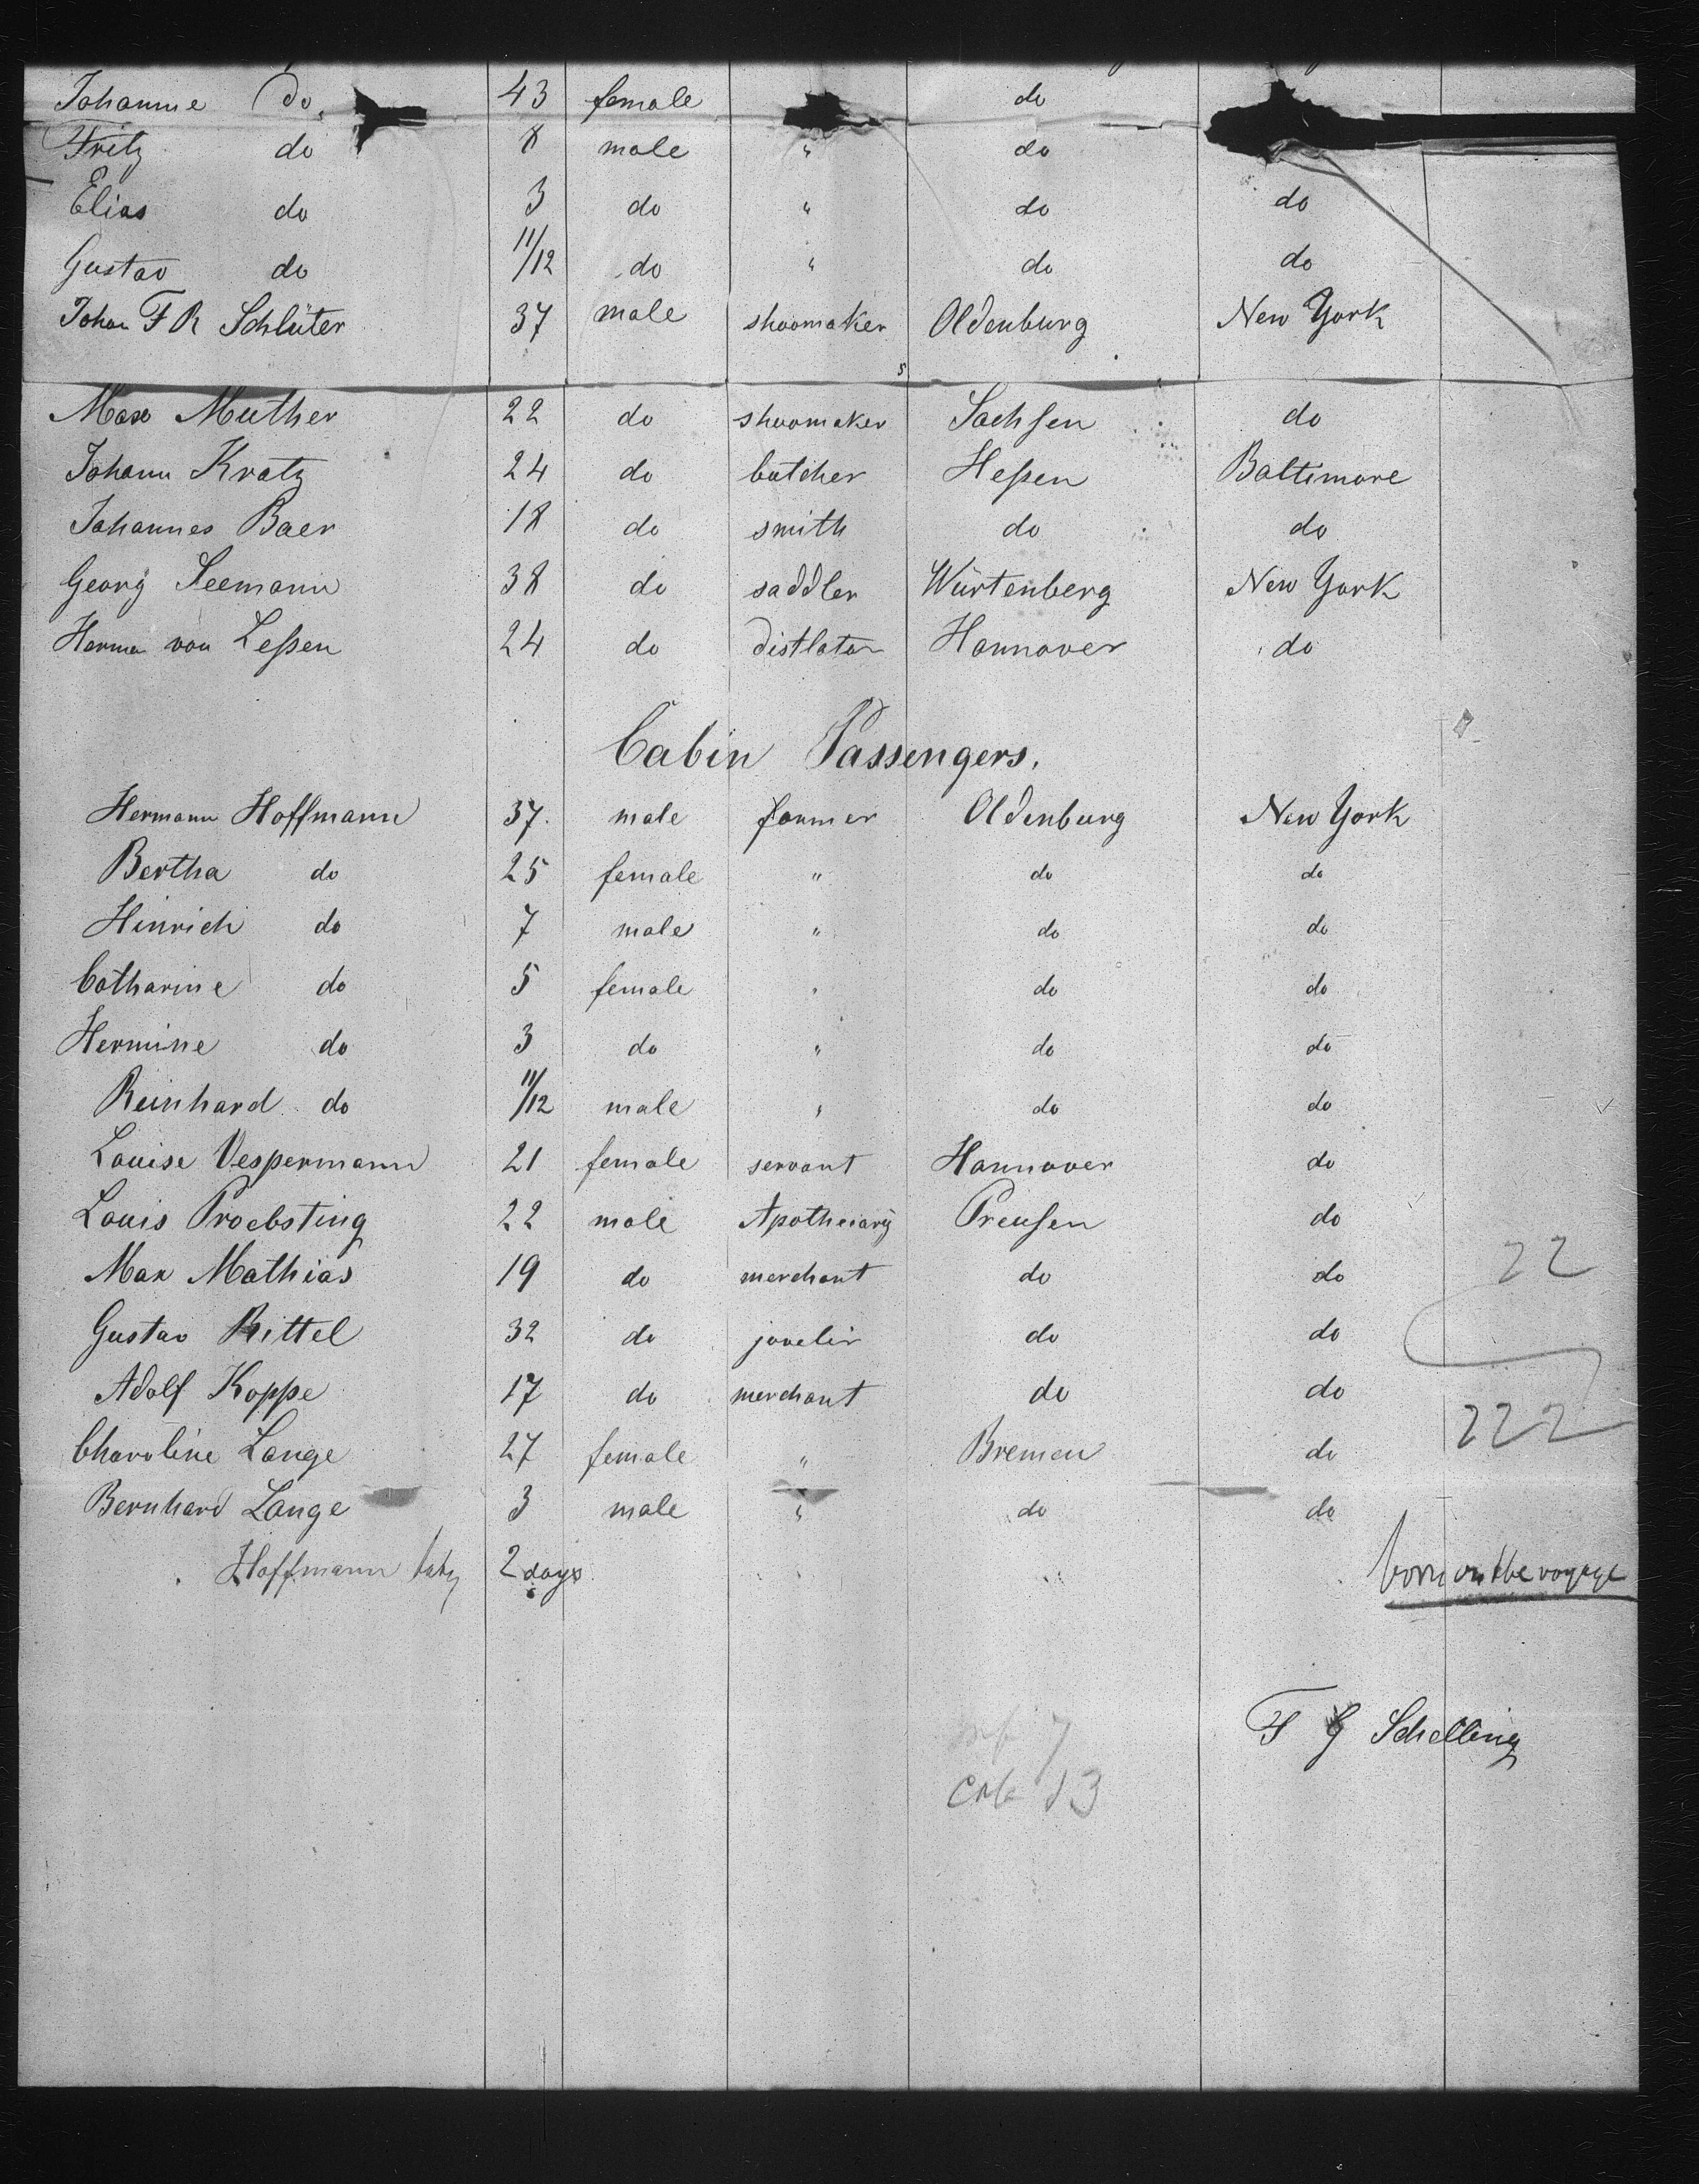 Johanne do 43 female do
Fritz do 8 male " do
Elias do 3 do " do do
Gustav do 11/12 do " do do
Johan F R Schlüter 37 male shoomaker Oldenburg New York
Max Muther 22 do shoomaker Sachsen do
Johann Kratz 24 do butcher Heßen Baltimore
Johannes Baer 18 do smith do do
Georg Seemann 38 do saddler Würtenberg New York
Herman von Leßen 24 do distlator Hannover do
Cabin Passengers.
Hermann Hoffmann 37. male farmer Oldenburg New York
Bertha do 25 female " do do
Hinrich do 7 male " do do
Catharine do 5 female " do do
Hermine do 3 do " do do
Reinhard do 11/12 male " do do
Louise Vespermann 21 female servant Hannover do
Louis Proebsting 22 male Apotheiary Preusen do
Max Mathias 19 do merchant do do
22
Gustav Rittel 32 do jouelir do do
Adolf Koppe 17 do merchant do do
222
Charoline Lange 27 female " Bremen do
Bernhard Lange 3 male " do do
Hoffmann baby 2 days born on the voyage
F G Schelling
7
13